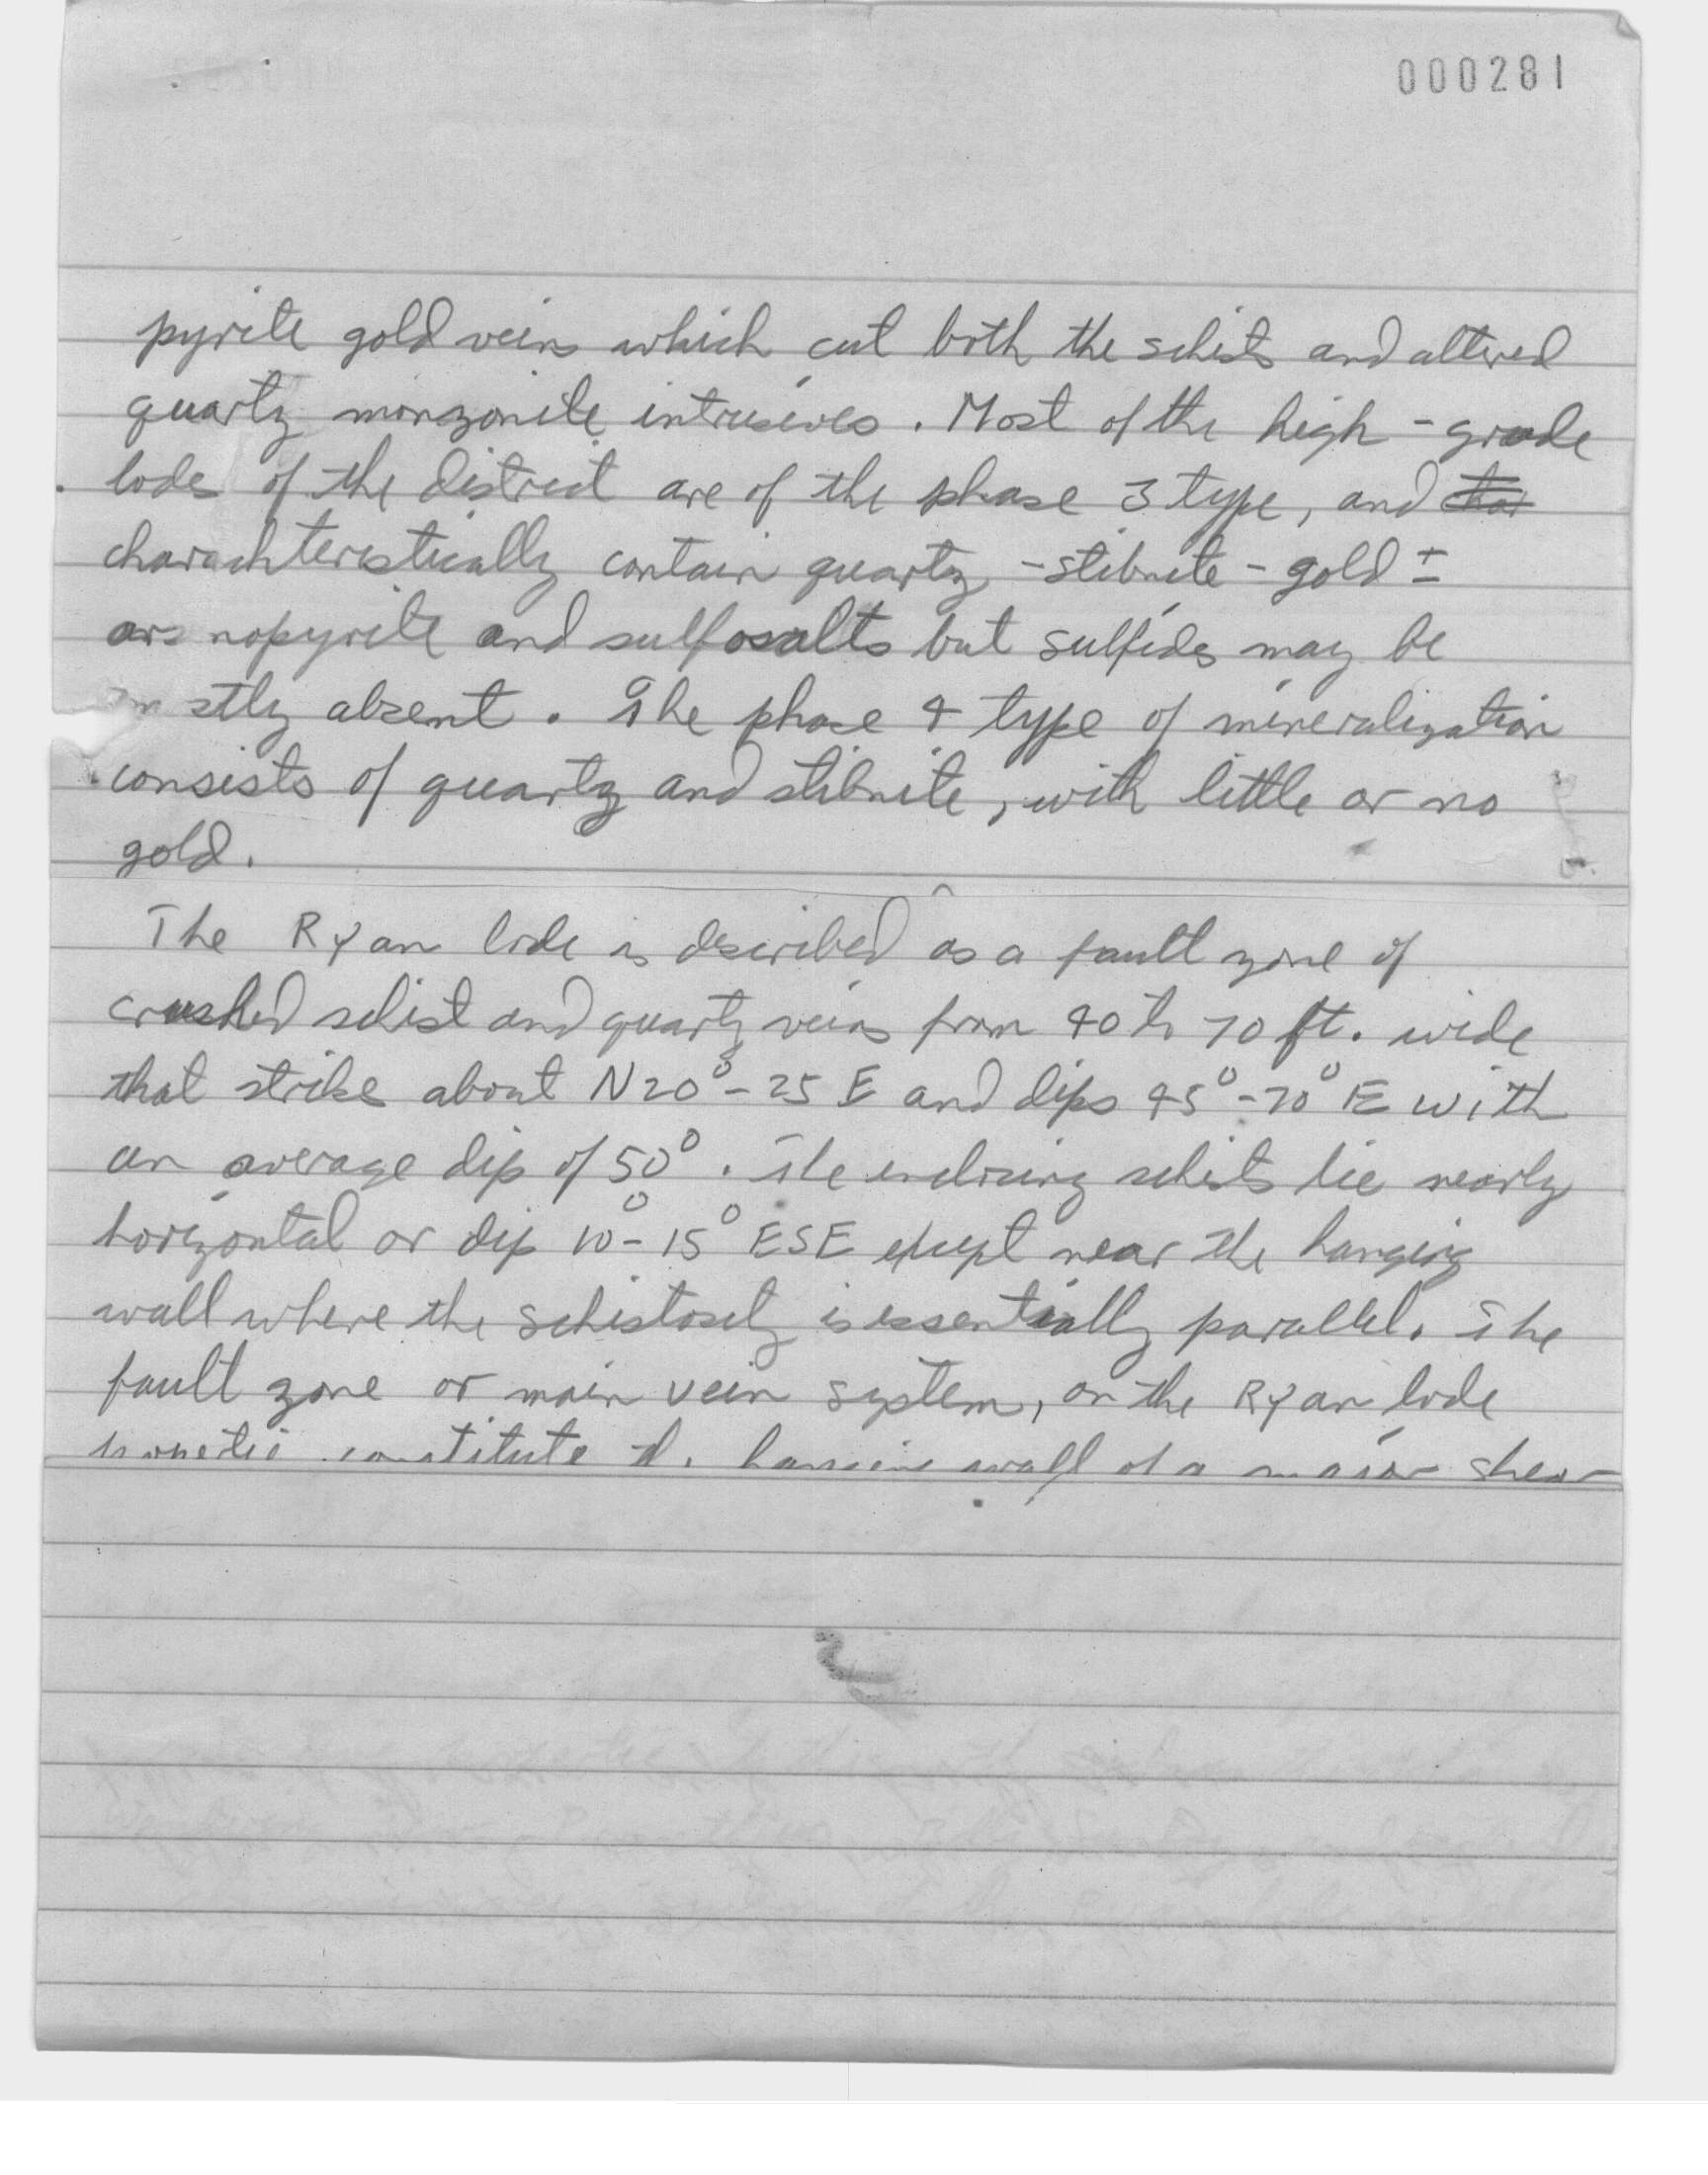 000281
pyrite gold veins which cut both the schists and altered
quartz monzonite intrusives. Most of the high-grade
lodes of the district are of the phase 3 type, and char
charachteristically contain quartz -stibnite - gold ±
arsnopyrite and sulfosalts but sulfides may be
mostly absent. The phase 4 type of mineralization
consists of quartz and stibnite, with little or no
gold.
The Ryan lode is described as a fault zone of
crushed schist and quartz veins from 40 to 70 ft. wide
that strikes about N20°-25 E and dips 45°-70° E with
an average dip of 50°. The enclosing schists lie nearly
horizontal or dip 10°-15° ESE except near the hanging
wall where the schistosity is essentially parallel. The
fault zone or main vein system, on the Ryan lode
constitute the hanging wall of a major shear